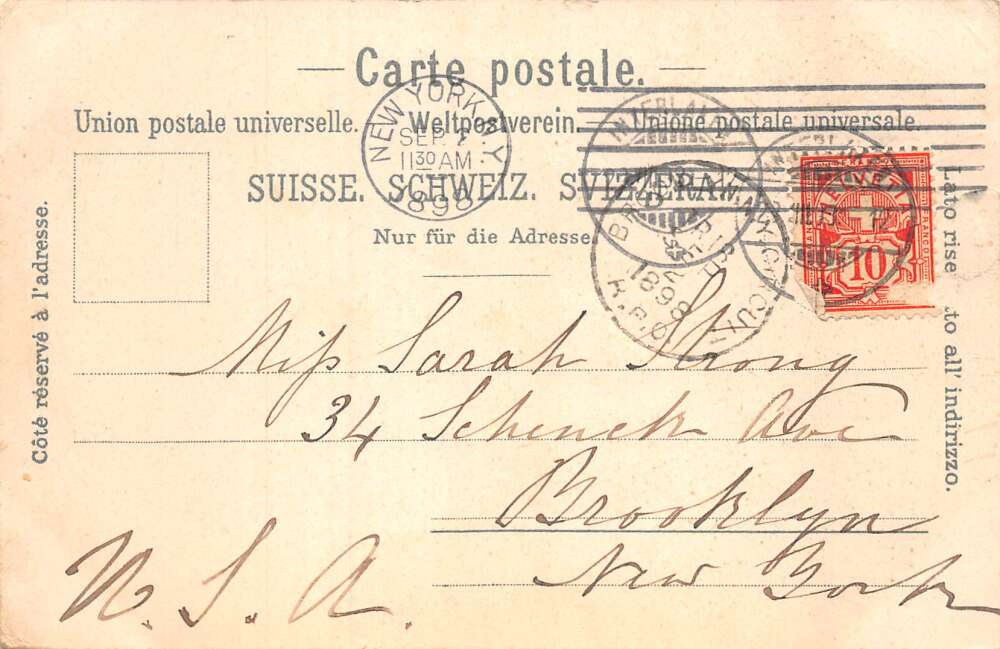 Carte postale.
Union postale universelle. — Weltpostverein. — Unione postale universale.
SUISSE. SCHWEIZ. SVIZZERA.
Nur für die Adresse.
Côté réservé à l'adresse.
Lato rise to all' indirizzo.
NEW YORK, N.Y.
SEP 2
11 30 AM
1898
INTERLAKEN
1898
HELVETIA
FRANCO
10
Miss Sarah Strong
34 Schenck Ave
Brooklyn
New York
U. S. A.